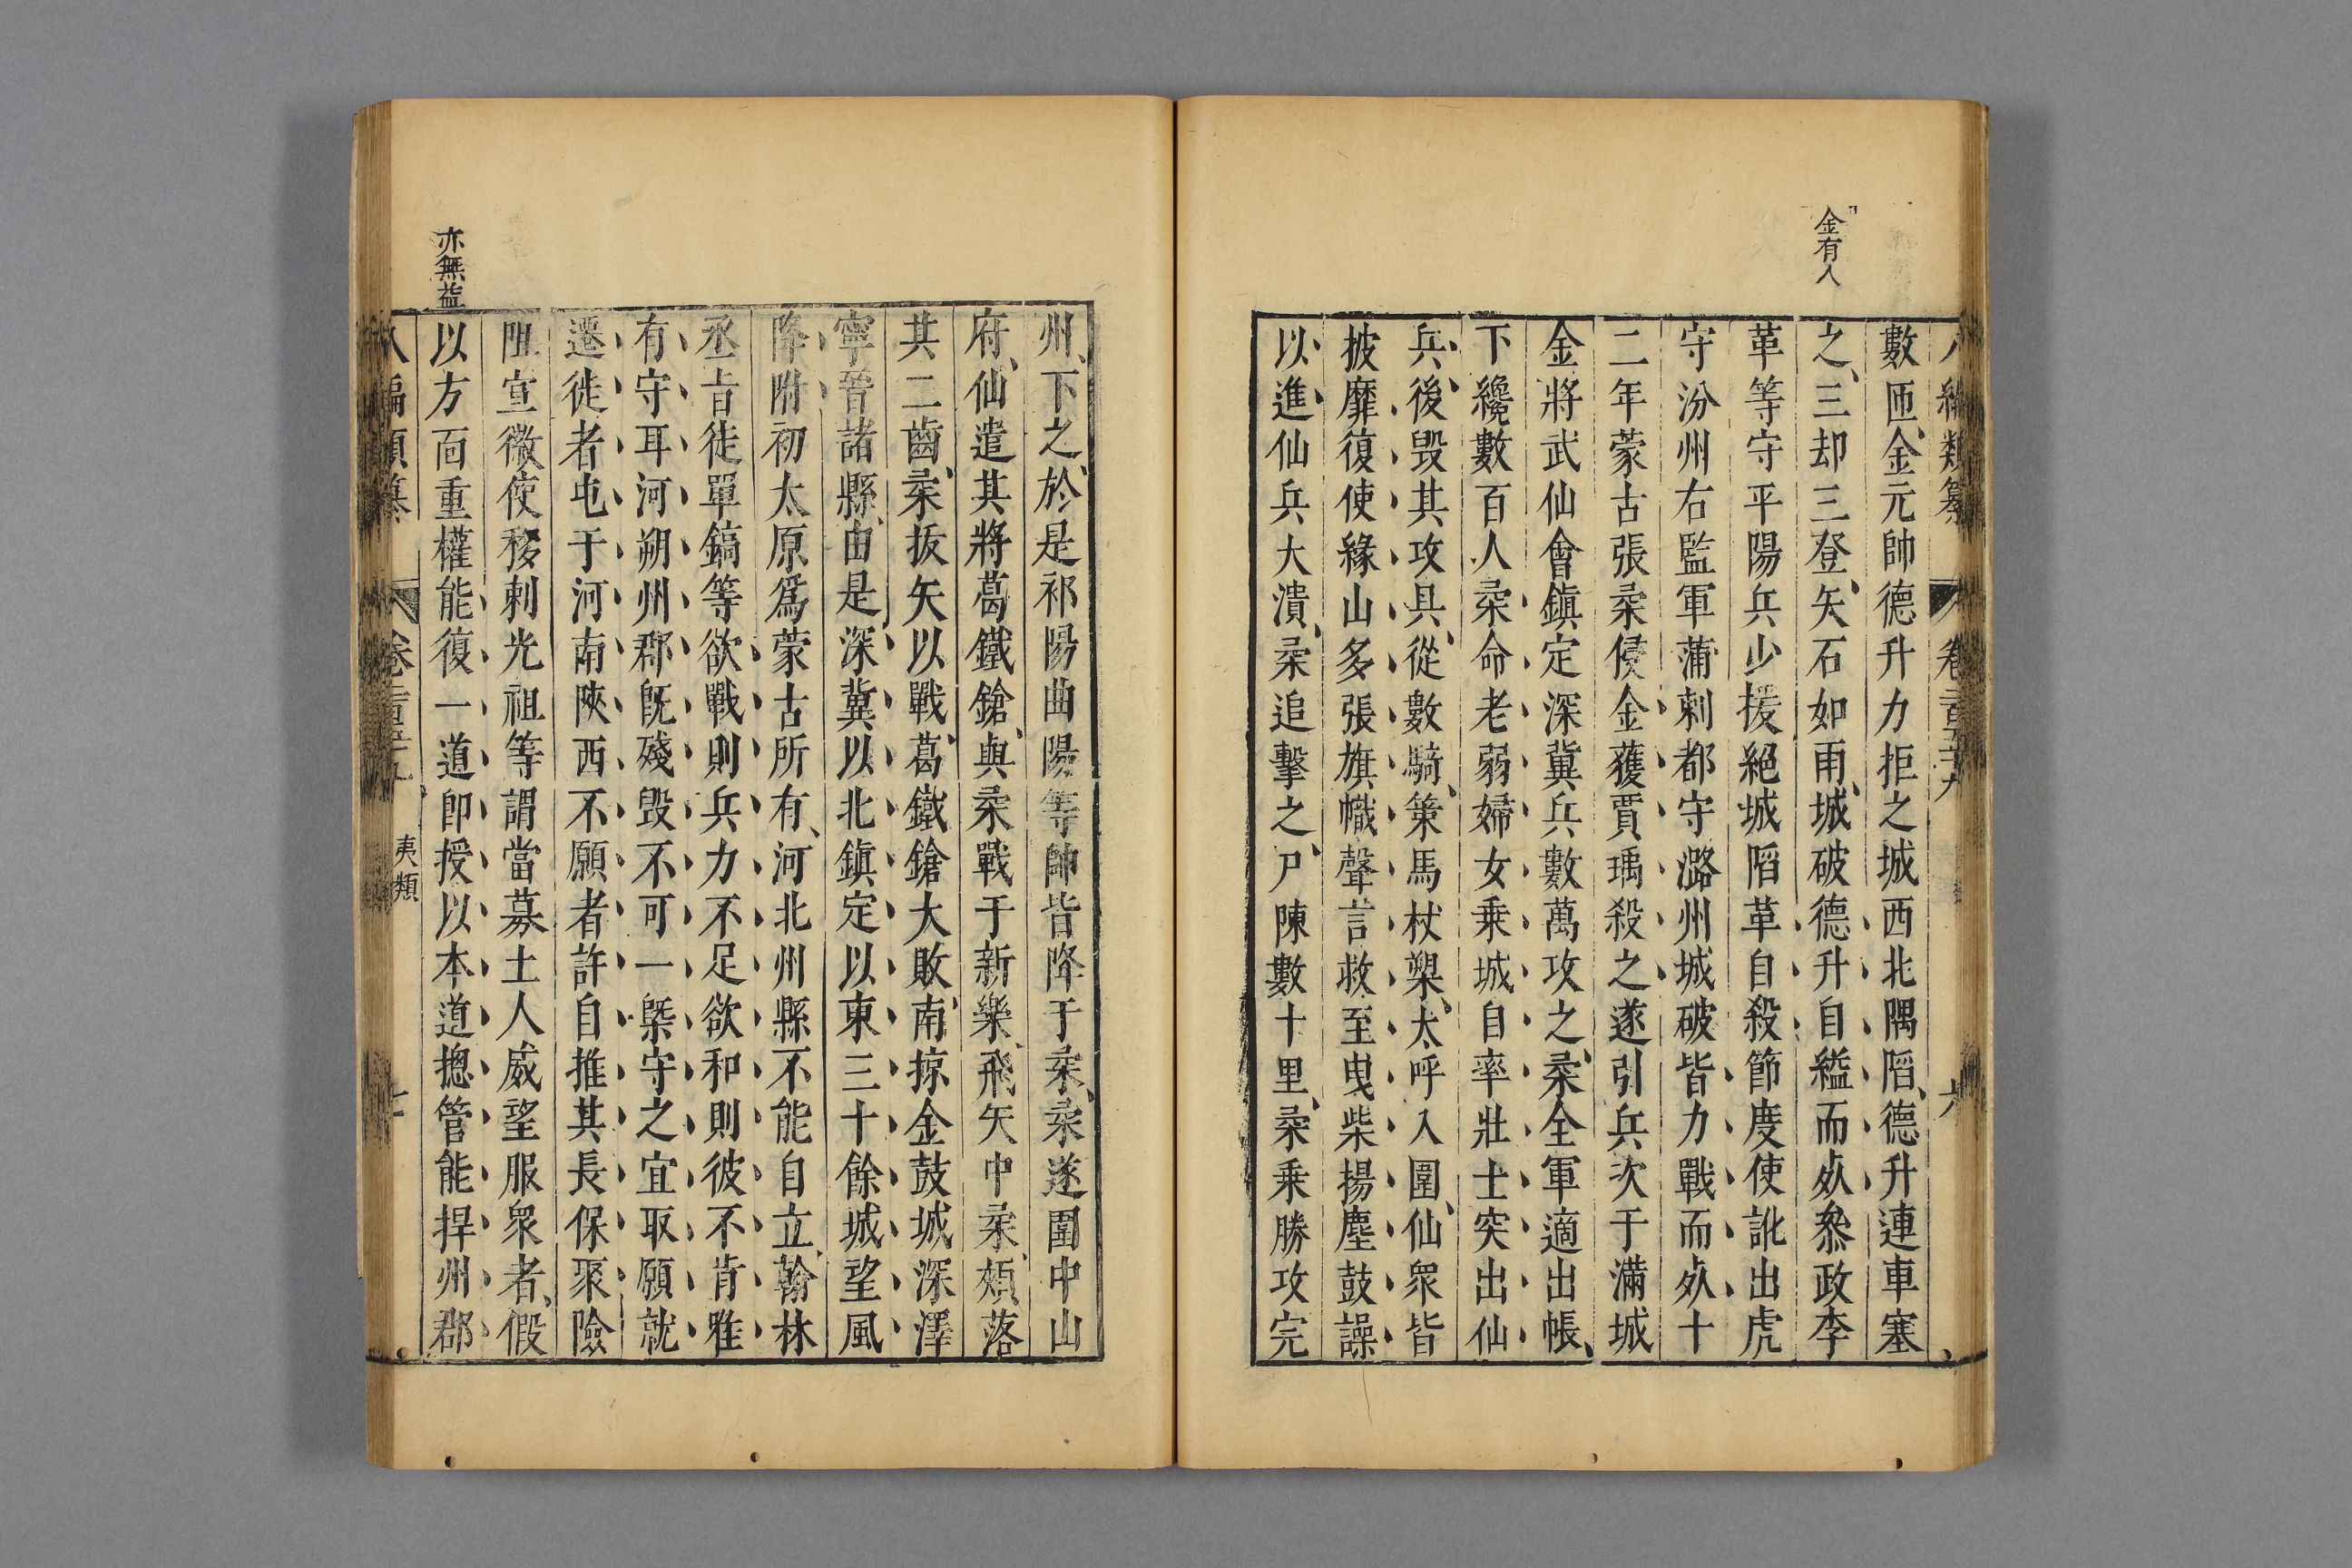 金有人
數匝金元帥德升力拒之城西北隅陷德升連車塞
之三却三登矢石如雨城破德升自縊而死叅政李
革等守平陽兵少援絕城陷革自殺節度使訛出虎
守汾州右監軍蒲剌都守潞州城破皆力戰而死十
二年蒙古張柔侵金獲賈瑀殺之遂引兵次于滿城
金將武仙會鎮定深冀兵數萬攻之柔全軍適出帳
下纔數百人柔命老弱婦女乗城自率壯士突出仙
兵後毀其攻具從數騎策馬杖槊大呼入圍仙衆皆
披靡復使緣山多張旗幟聲言救至曳柴揚塵鼓譟
以進仙兵大潰柔追擊之尸陳數十里柔乗勝攻完
州下之於是祁陽曲陽等帥皆降于柔柔遂圍中山
府仙遣其將葛鐵鎗與柔戰于新樂飛矢中柔頰落
其二齒柔拔矢以戰葛鐵鎗大敗南掠金鼓城深澤
寧晉諸縣由是深冀以北鎮定以東三十餘城望風
降附初太原爲蒙古所有河北州縣不能自立翰林
丞旨徒單鎬等欲戰則兵力不足欲和則彼不肯雅
有守耳河朔州郡旣殘毀不可一槩守之宜取願就
遷徙者屯于河南陝西不願者許自推其長保聚險
阻宣徽使移剌光祖等謂當募土人威望服衆者假
亦無益
以方面重權能復一道卽授以本道摠管能捍州郡
夷類